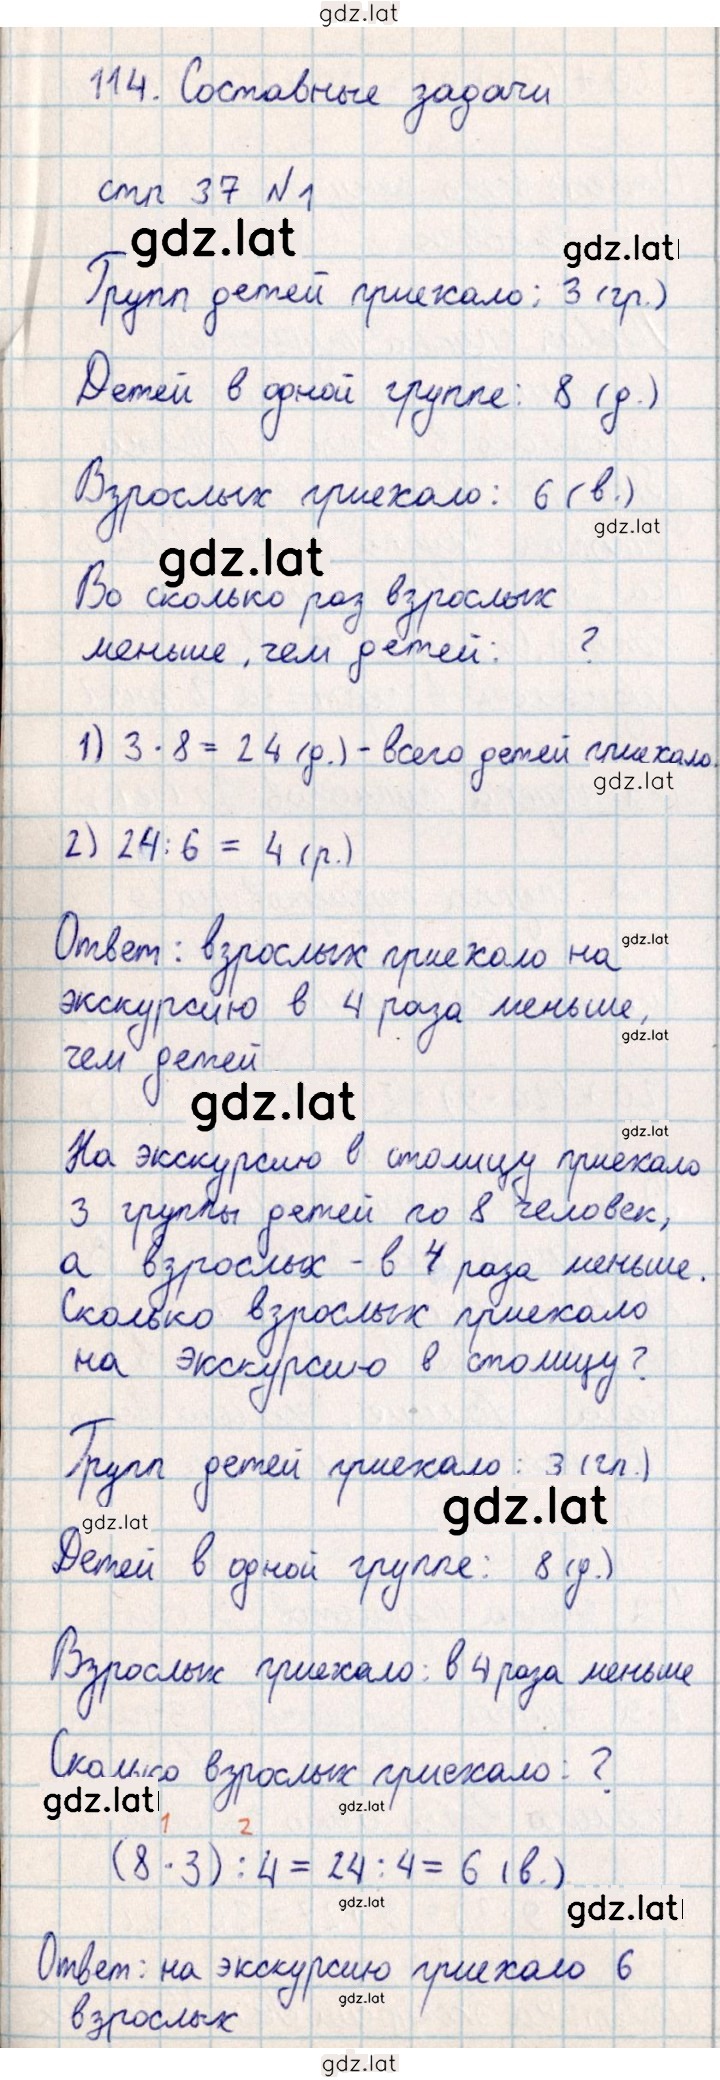 gdz.lat
114. Составные задачи
стр 37 №1
gdz.lat gdz.lat
Групп детей приехало: 3 (гр.)
Детей в одной группе: 8 (д.)
Взрослых приехало: 6 (в.)
gdz.lat
gdz.lat
Во сколько раз взрослых
меньше, чем детей: ?
1) 3 · 8 = 24 (д.) - всего детей приехало.
gdz.lat
2) 24 : 6 = 4 (р.)
Ответ: взрослых приехало на
gdz.lat
экскурсию в 4 раза меньше,
gdz.lat
чем детей
gdz.lat
gdz.lat
На экскурсию в столицу приехало
3 группы детей по 8 человек,
а взрослых - в 4 раза меньше.
Сколько взрослых приехало
на экскурсию в столицу?
Групп детей приехало: 3 (гр.)
gdz.lat
gdz.lat
Детей в одной группе: 8 (д.)
Взрослых приехало: в 4 раза меньше
Сколько взрослых приехало: ?
gdz.lat gdz.lat
1 2
(8 · 3) : 4 = 24 : 4 = 6 (в.)
gdz.lat gdz.lat
Ответ: на экскурсию приехало 6
gdz.lat
взрослых
gdz.lat